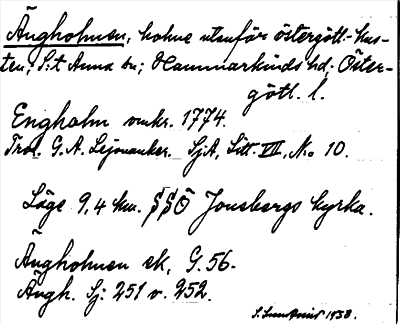 Ängholmen, holme utanför östergötl. kus-
ten, S:t Anna sn; Hammarkinds hd; Öster-
götl. l.
Engholm omkr. 1774.
Trol. G. A. Lejonanker. SjA, Litt. VII, No 10.
Läge 9,4 km. SSÖ Jonsbergs kyrka.
Ängholmen ek, G. 56.
Ängh. Sj: 251 v. 252.
1938.